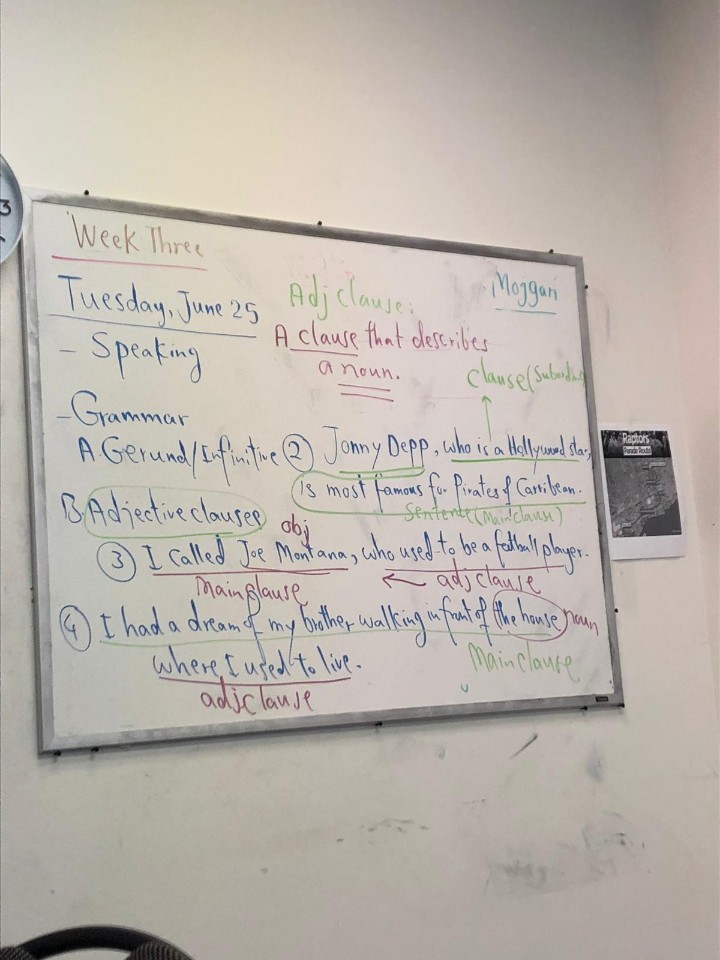 Week Three
Tuesday, June 25
- Speaking
- Grammar
A. Gerund/Infinitive
B. Adjective clauses
Mojgan
Adj clause:
A clause that describes
a noun.
clause (Subordin
② Jonny Depp, who is a Hollywood star,
is most famous for Pirates of Carribean.
Sentence (Main clause)
obj
③ I called Joe Montana, who used to be a football player.
Main clause ← adj clause
④ I had a dream of my brother walking in front of the house noun
where I used to live.
Main clause
adj clause
Raptors
Parade Route
3